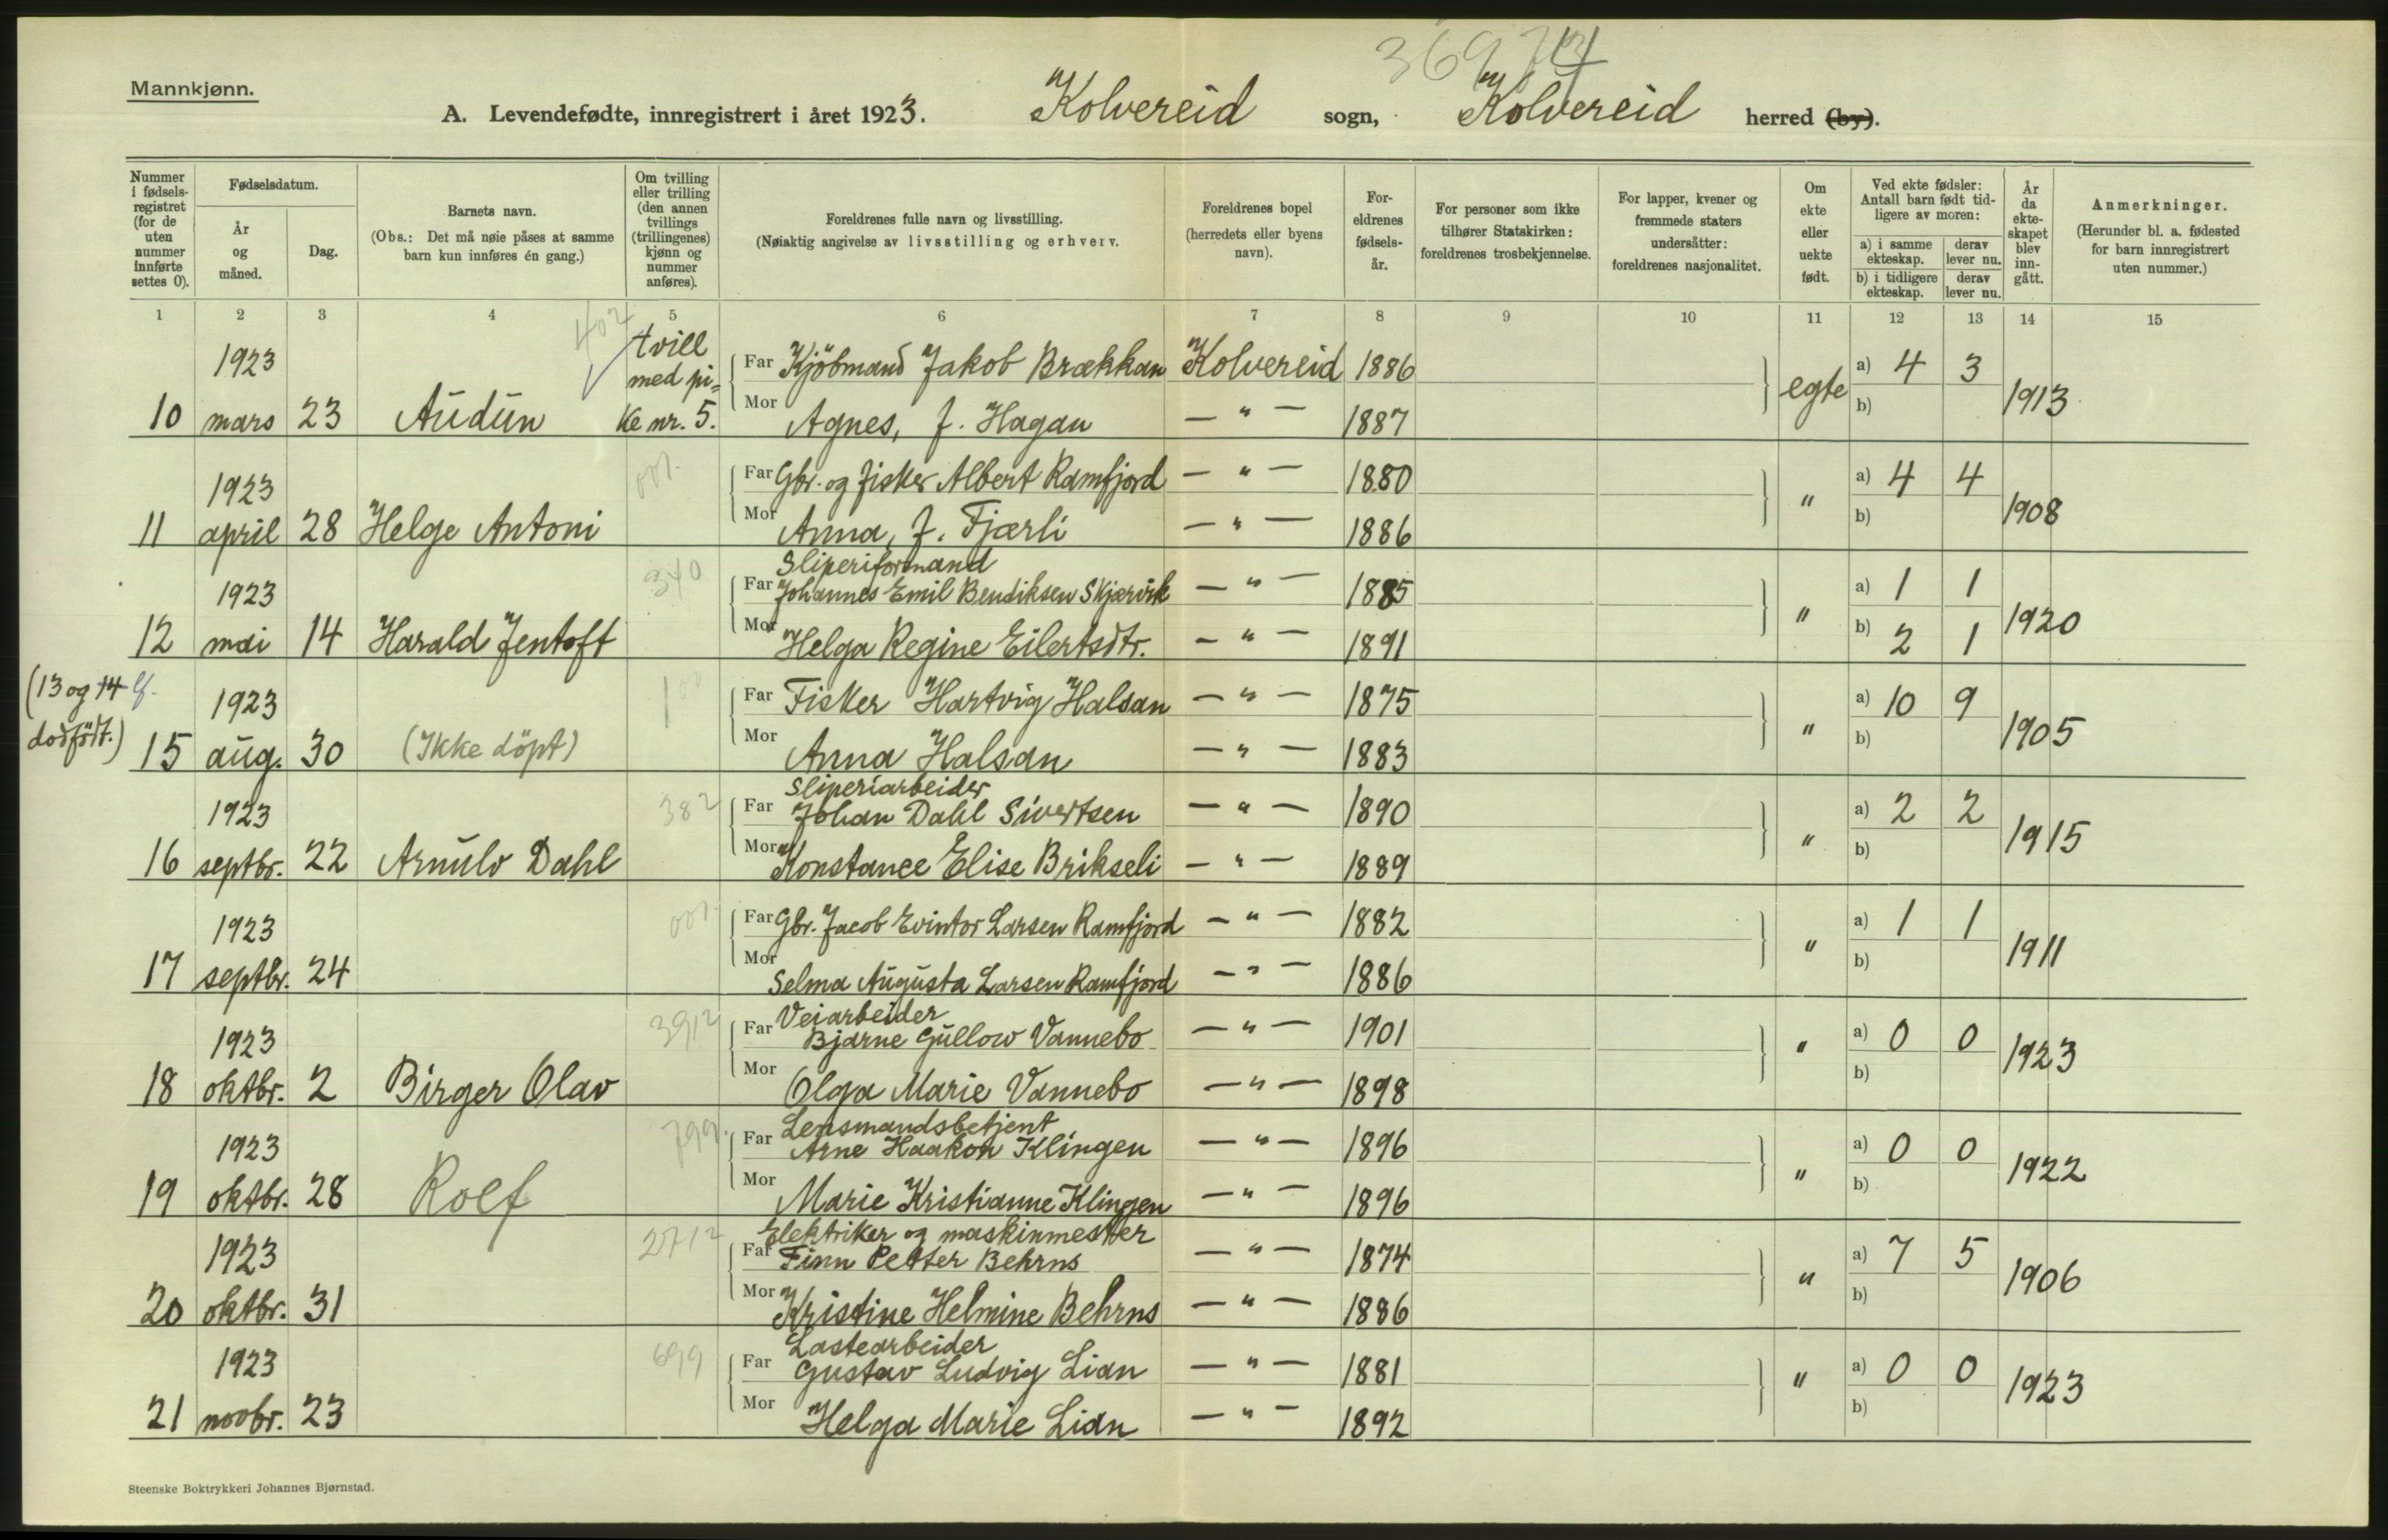 36974
Mannkjønn.
A. Levendefødte, innregistrert i året 1923. Kolvereid sogn, Kolvereid herred (by).
Nummer i fødsels-registret (for de uten nummer innførte settes 0).
Fødselsdatum.
År og måned.
Dag.
Barnets navn.
(Obs.: Det må nøie påses at samme barn kun innføres én gang.)
Om tvilling eller trilling (den annen tvillings (trillingenes) kjønn og nummer anføres).
Foreldrenes fulle navn og livsstilling.
(Nøiaktig angivelse av livsstilling og erhverv.
Foreldrenes bopel (herredets eller byens navn).
For-eldrenes fødsels-år.
For personer som ikke tilhører Statskirken: foreldrenes trosbekjennelse.
For lapper, kvener og fremmede staters undersåtter: foreldrenes nasjonalitet.
Om ekte eller uekte født.
Ved ekte fødsler: Antall barn født tid-ligere av moren:
a) i samme ekteskap. derav lever nu.
b) i tidligere ekteskap. derav lever nu.
År da ekte-skapet blev inn-gått.
Anmerkninger.
(Herunder bl. a. fødested for barn innregistrert uten nummer.)
1 2 3 4 5 6 7 8 9 10 11 12 13 14 15
402
1923 tvill med pi= Far Kjöbmand Jakob Brækkan Kolvereid 1886 egte a) 4 3 1913
10 mars 23 Audun ke nr. 5. Mor Agnes, f. Hagan — " — 1887 b)
001.
1923 Far Gbr. og fisker Albert Ramfjord — " — 1880 " a) 4 4 1908
11 april 28 Helge Antoni Mor Anna, f. Fjærli — " — 1886 b)
Sliperiformand
1923 340 Far Johannes Emil Bendiksen Skjærvik — " — 1885 " a) 1 1 1920
12 mai 14 Harald Jentoft Mor Helga Regine Eilertsdtr. — " — 1891 b) 2 1
(13 og 14
dødfödt.)
1923 100 Far Fisker Hartvig Halsan — " — 1875 " a) 10 9 1905
15 aug. 30 (Ikke döpt) Mor Anna Halsan — " — 1883 b)
Sliperiarbeider
1923 382 Far Johan Dahl Sivertsen — " — 1890 " a) 2 2 1915
16 septbr. 22 Arnulv Dahl Mor Konstance Elise Brikseli — " — 1889 b)
1923 001. Far Gbr. Jacob Evintor Larsen Ramfjord — " — 1882 " a) 1 1 1911
17 septbr. 24 Mor Selma Augusta Larsen Ramfjord — " — 1886 b)
Veiarbeider
1923 3912 Far Bjarne Gullow Vannebo — " — 1901 " a) 0 0 1923
18 oktbr. 2 Birger Olav Mor Olga Marie Vannebo — " — 1898 b)
Lensmandsbetjent
1923 799. Far Arne Haakon Klingen — " — 1896 " a) 0 0 1922
19 oktbr. 28 Rolf Mor Marie Kristianne Klingen — " — 1896 b)
Elektriker og maskinmester
1923 2712 Far Finn Petter Behrns — " — 1874 " a) 7 5 1906
20 oktbr. 31 Mor Kristine Helmine Behrns — " — 1886 b)
Lastearbeider
1923 699 Far Gustav Ludvig Lian — " — 1881 " a) 0 0 1923
21 novbr. 23 Mor Helga Marie Lian — " — 1892 b)
Steenske Boktrykkeri Johannes Bjørnstad.